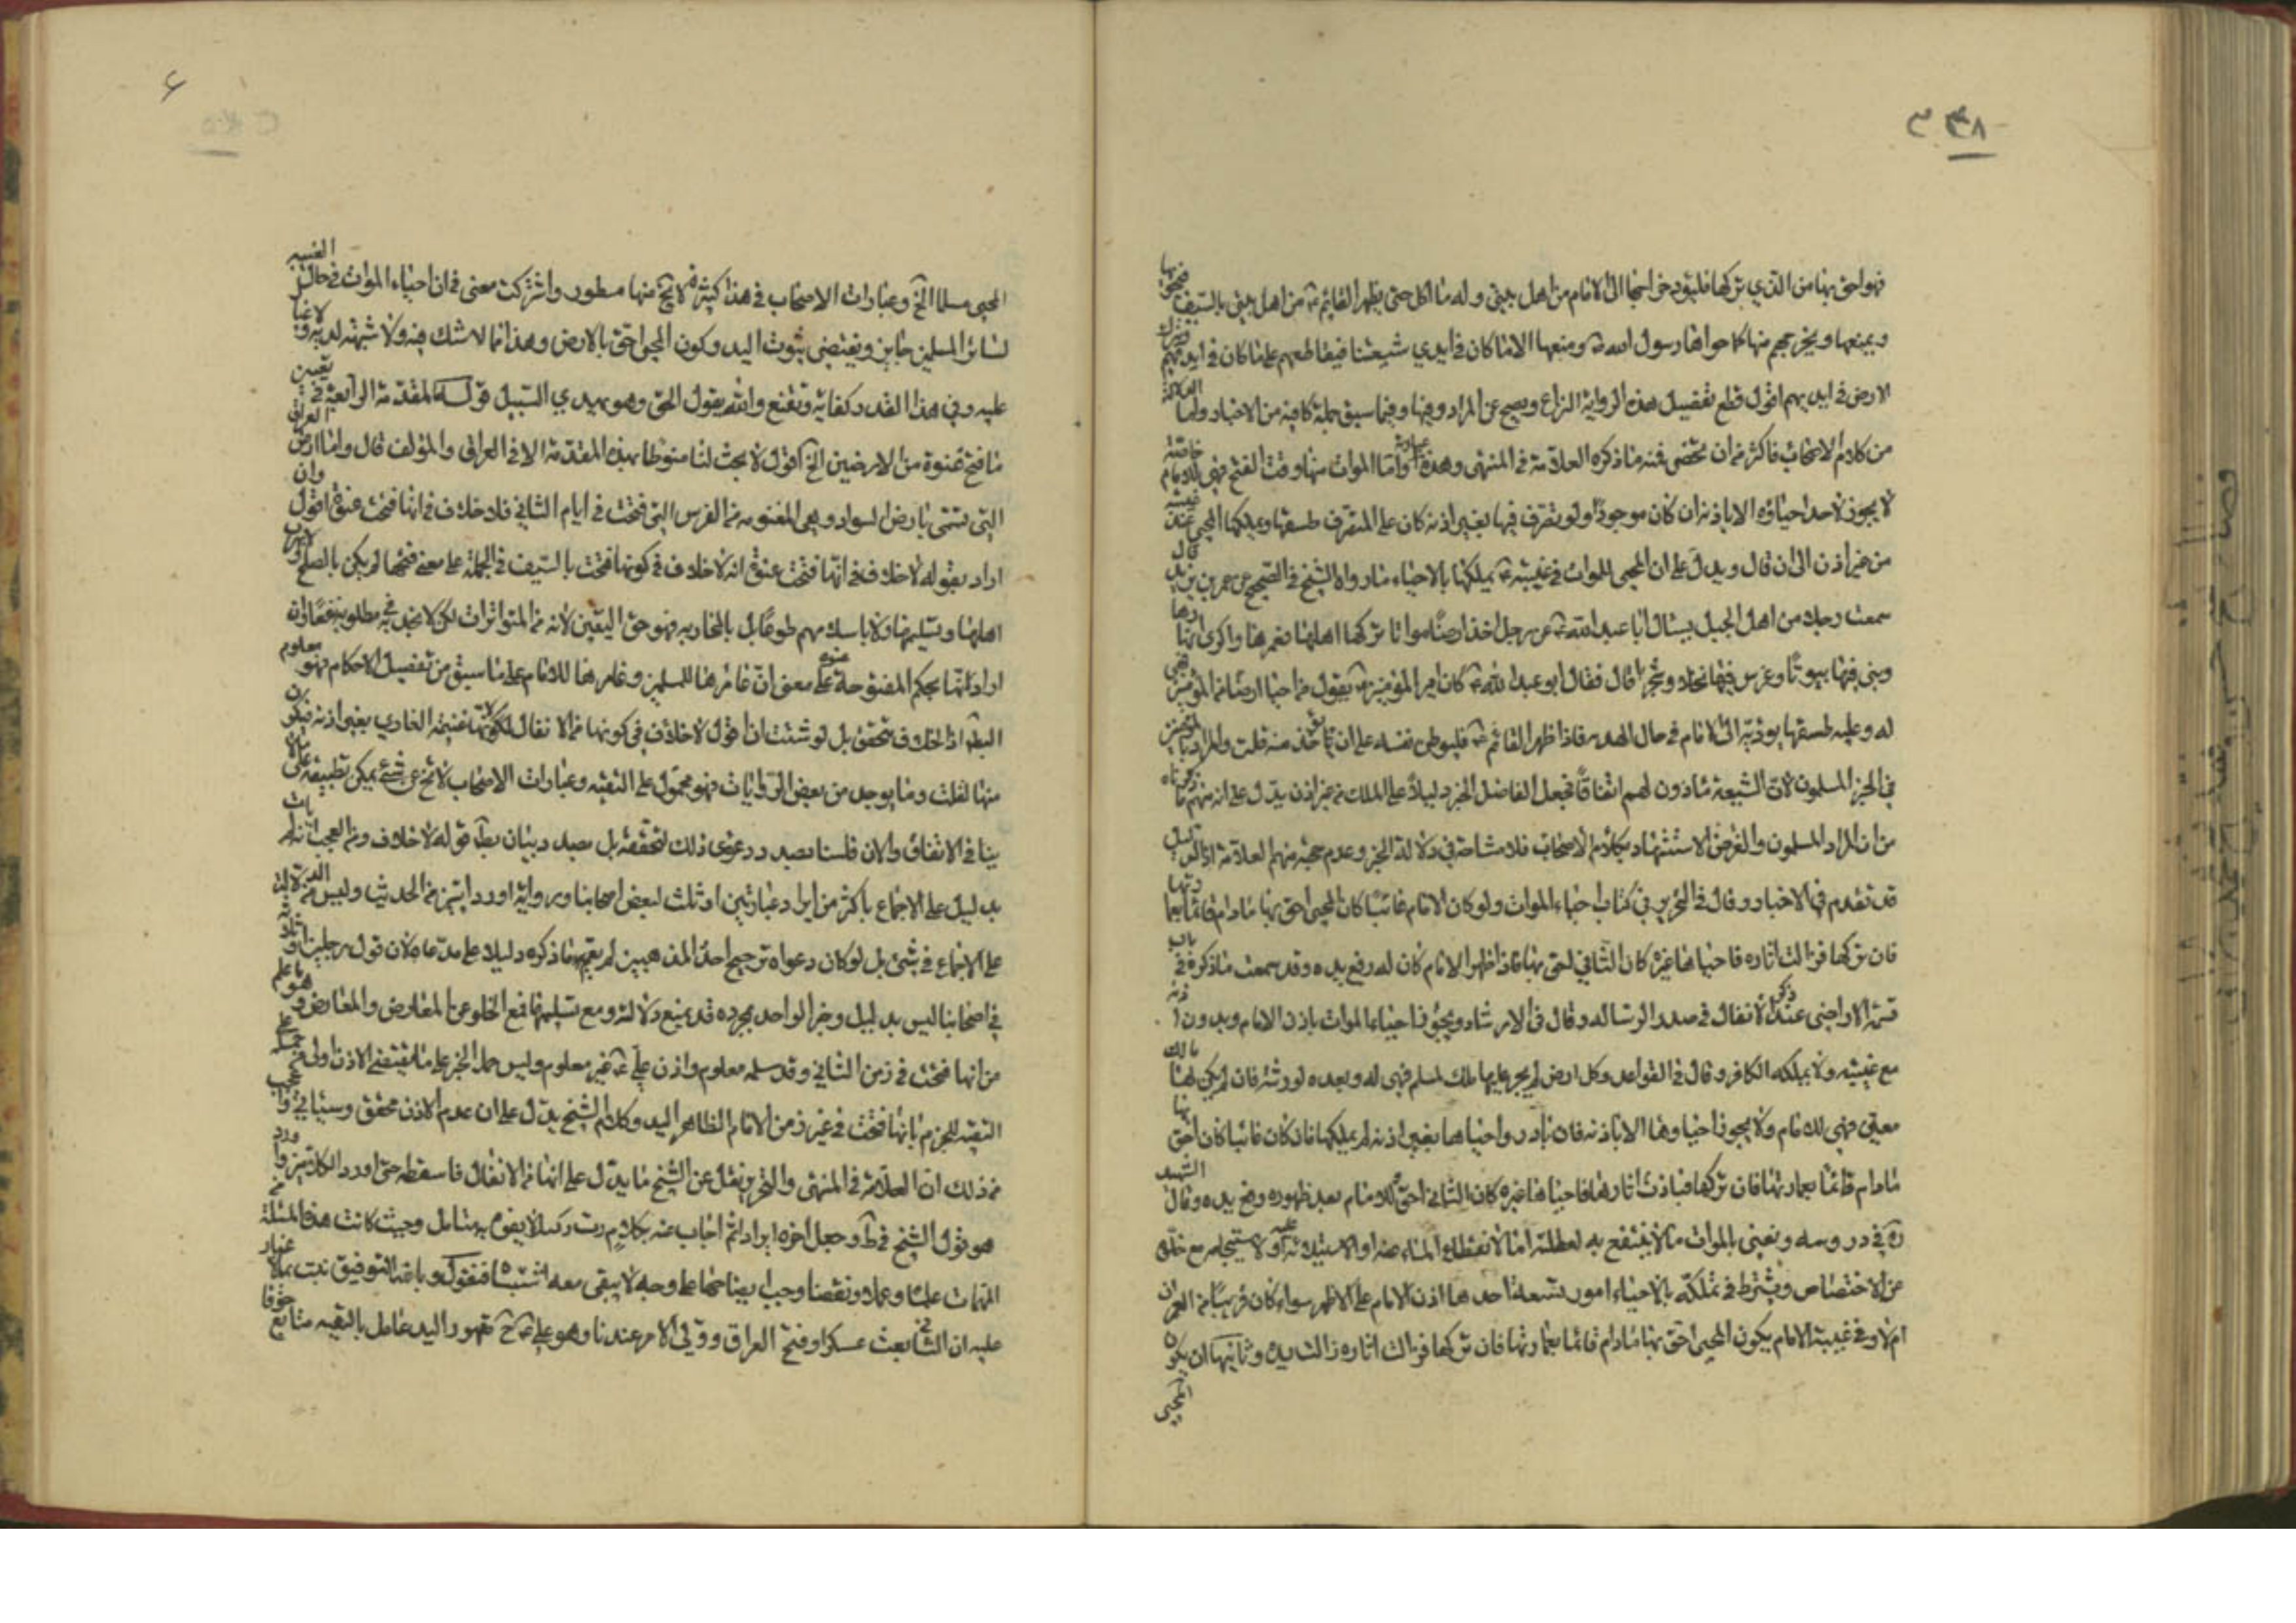 ٣٨
فهو احق بها من الذي تركها فليؤد خراجها الى الامام من اهل بيتي وله ما اكل حتى يظهر القايم من اهل بيتي بالسيف فيحويها
ويمنعها ويخرجهم منها كما حواها رسول الله ومنعها الا ما كان في ايدي شيعتنا فيقاطعهم على ما كان في ايديهم ويترك
الارض في ايديهم اقول قطع تفصيل هذه الرواية النزاع وفيها وفيما سبق جملة كافية من الاخبار واما
من كلام الاصحاب فاكثر من ان يحصى فمنه ما ذكره العلامة في المنتهى وهذه عبارته واما الموات منها وقت الفتح فهي للامام خاصة
لا يجوز لاحد احياؤه الا باذنه ان كان موجودا ولو تصرف فيها بغير اذنه كان على المتصرف طسقها ويملكها المحيي عند غيبته
من غير اذن الى ان قال ويدل على ان المحيي للموات في غيبته يملكها بالاحياء ما رواه الشيخ في الصحيح عن عمر بن يزيد قال
سمعت رجلا من اهل الجبل يسال ابا عبد الله عن رجل اخذ ارضا مواتا تركها اهلها فعمرها واكرى انهارها
وبنى فيها بيوتا وغرس فيها نخلا وشجرا قال فقال ابو عبد الله كان امير المؤمنين يقول من احيا ارضا من المؤمنين فهي
له وعليه طسقها يؤديه الى الامام في حال الهدنة فاذا ظهر القائم فليوطن نفسه على ان تؤخذ منه قلت والمراد بالمؤمنين
في الخبر المسلمون لان الشيعة ماذون لهم اتفاقا فجعل الفاضل الخبر دليلا على الملك من غير اذن يدل على انه فهم ما ذكرناه
من ان المراد المسلمون والغرض الاستشهاد بكلام الاصحاب فلا مشاحة في دلالة الخبر وعدم حجية فهم العلامة
قد تقدم في الاخبار وقال في التحرير في كتاب احياء الموات ولو كان الامام غائبا كان المحيي احق بها ما دام قائما بعمارتها
فان تركها فزالت اثاره فاحياها غيره كان الثاني احق بها فاذا ظهر الامام كان له رفع يده وقد سمعت ما ذكره في باب
قسمة الاراضي عند ذكر الانفال في صدر الرسالة وقال في الارشاد ويجوز احياء الموات باذن الامام وبدون اذنه
مع غيبته ولا يملكه الكافر وقال في القواعد وكل ارض لم يجر عليها ملك لمسلم فهي له وبعده لورثته فان لم يكن لها مالك
معين فهي للامام ولا يجوز احياؤها الا باذنه فان بادر واحياها بغير اذنه لم يملكها فان كان غائبا كان احق بها
ما دام قائما بعمارتها فان تركها فبادت اثارها فاحياها غيره كان الثاني احق وللامام بعد ظهوره رفع يده وقال الشهيد
ره في دروسه ونعني بالموات ما لا ينتفع به لعطلته اما لانقطاع الماء عنه او لاستيلائه عليه او لاستيجامه مع خلوه
عن الاختصاص ويشترط في تملكه بالاحياء امور تسعة احدها اذن الامام على الاظهر سواء كان قريبا من العمران
ام لا وفي غيبة الامام يكون المحيي احق بها ما دام قائما بعمارتها فان تركها فزالت اثاره زالت يده وثانيها ان يكون
المحيي
المحيي مسلما الخ وعبارات الاصحاب في هذا كثيرة منها مسطور واشتركت معنى في ان احياء الموات في حال الغيبة
لسائر المسلمين جايز ويقتضي ثبوت اليد وكون المحيي احق بالارض وهذا مما لا شك فيه ولا شبهة تعتريه لا غبار
عليه وفي هذا القدر كفاية ومقنع والله يقول الحق وهو يهدي السبيل قوله المقدمة الرابعة في تعيين
ما فتح عنوة من الارضين الخ اقول لا بحث لنا منوطا بهذه المقدمة الا في العراق والمؤلف قال واما ارض العراق
التي تسمى بارض السواد وهي المغنومة من الفرس التي فتحت في ايام الثاني فلا خلاف في انها فتحت عنوة اقول وان
اراد بقوله لا خلاف في انها فتحت عنوة انه لا خلاف في كونها فتحت بالسيف في الجملة على معنى فتحها لم يكن بالصلح
اهلها وتسليمها ولا باسلامهم طوعا بل بالمحاربة فهو حق اليقين لانه من المتواترات لكن لا يجديه في مطلوبه نفعا وان
اراد انها بحكم المفتوحة عنوة على معنى ان عامرها للمسلمين وغامرها للامام على ما سبق من تفصيل الاحكام فهو معلوم
البطلان اذ الخلاف متحقق بل لو شئت ان اقول لا خلاف في كونها من الانفال لكونها غنيمة الغازي بغير اذنه
منها لقلت وما يوجد من بعض الروايات فهو محمول على التقية وعبارات الاصحاب لا تخ عن شيء يمكن تطبيقه على ما لا
ينافي الاتفاق والان فلسنا بصدد دعوى ذلك لتحققه بل بصدد بيان بطلان قوله لا خلاف ومن العجب انه لم يات
بدليل على الاجماع باكثر من ايراد عبارتين او ثلث لبعض اصحابنا ورواية او روايتين من الحديث وليس من الدلالة
على الاجماع في شيء بل لو كان دعواه ترجيح احد المذهبين لم يتم ما ذكره دليلا على مدعاه لان قول رجلين او ثلاثة
في اصحابنا ليس بدليل وخبر الواحد بمجرده قد يمنع دلالته ومع تسليمها فمع الخلو عن المعارض والمعارض هو ما علم
من انها فتحت في زمن الثاني وقد سلمه معلوم واذن علي غير معلوم وليس حمل الخبر على ما يقتضي الاذن اولى من حمله على
التقية للجزم بانها فتحت في غير زمن الامام الظاهر اليد وكلام الشيخ يدل على ان عدم الاذن محقق وسياتي واعجب
من ذلك ان العلامة في المنتهى والتحرير نقل عن الشيخ ما يدل على انها من الانفال فاسقطه حتى اورد الكلامين واورد
هو قول الشيخ في ط وجعل اخره ايرادا ثم اجاب عنه بكلام رث ركيك لا يفوه به متامل وحيث كانت هذه المسئلة من
المهمات علما وعملا ونقضا وجب ايضاحها على وجه لا يبقى معه اشتباه فنقول وبالله التوفيق ثبت بما لا غبار
عليه ان الثاني بعث عسكرا وفتح العراق وولي الامر عندنا وهو علي ح مقهور اليد عامل بالتقية متابع خوفا